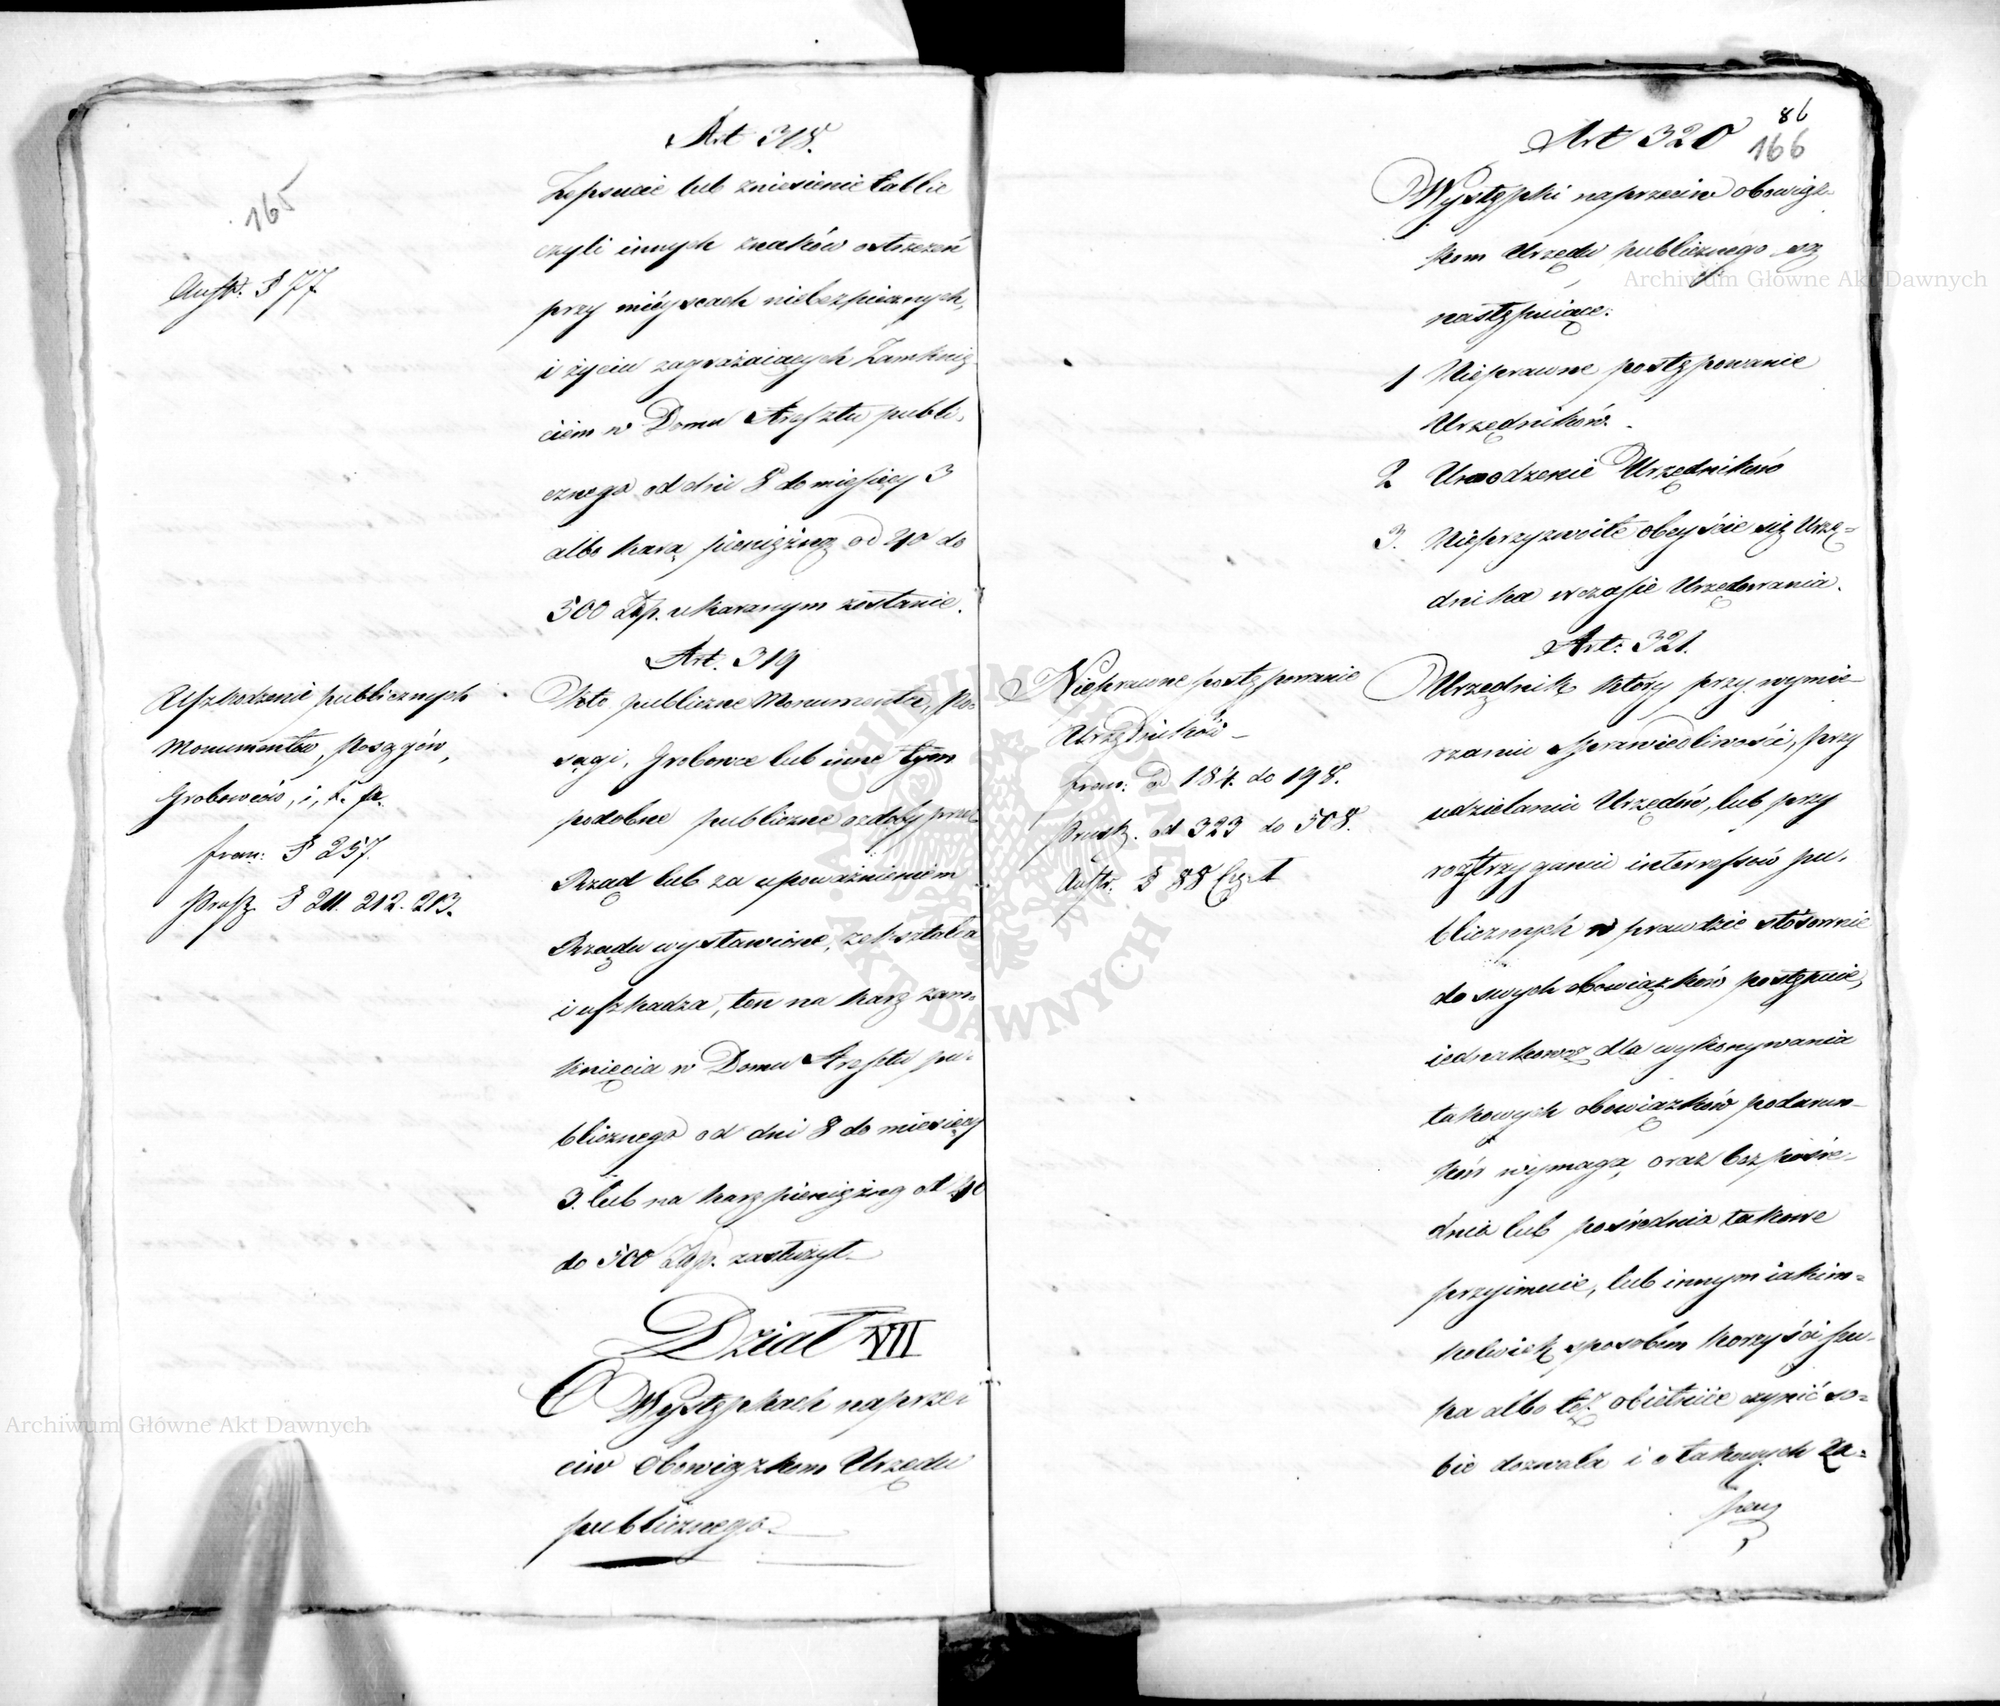 165
Art 318.
Austr. § 77.
Zepsucie lub zniesienie tablic
czyli innych znaków ostrzeżeń
przy mieyscach niebezpiecznych,
i życiu zagrażaiących Zamknię-
ciem w Domu Aresztu publi-
cznego od dni 8 do miesięcy 3
albo karą pieniężną od 40 do
500 Złp. ukaranym zostanie.
Art. 319
Uszkodzenie publicznych
Monumentów, Posągów,
Grobowców, i, t. p.
fran: § 257.
Prusk § 211. 212. 213.
Kto publiczne Monumenta, Po-
sągi, Grobowce lub inne tym
podobne publiczne ozdoby przez
Rząd lub za upoważnieniem
Rządu wystawione, zekształca
i uszkadza, ten na karę zam-
knięcia w Domu Aresztu pu-
blicznego od dni 8 do miesięcy
3. lub na karę pieniężną od 40
do 500 Złp. zasłużył.
Dział VII
O Występkach naprze-
ciw Obowiązkom Urzędu
publicznego.
86
166
Art 320
Występki naprzeciw obowiąz-
kom Urzędu publicznego są
następuiące:
1 Nieprawne postępowanie
Urzędników.
2 Uwodzenie Urzędników
3. Nieprzyzwoite obeyście się Urzę-
dnika w czasie Urzędowania.
Art: 321.
Nieprawne postępowanie
Urzędników
fran: od 184. do 198.
Prusk. od 323 do 508.
Austr. § 88
Urzędnik który przy wymie-
rzaniu sprawiedliwości, przy
udzielaniu Urzędów, lub przy
roztrzyganiu interessów pu-
blicznych w prawdzie stosownie
do swych obowiązków postępuie,
iednakowoż dla wykonywania
takowych obowiązków podarun-
ków wymaga, oraz bezpośre-
dnio lub pośrednio takowe
przyimuie, lub innym iakim-
kolwiek sposobem korzyści szu-
ka albo też obietnice czynić so-
bie dozwala i o takowych za-